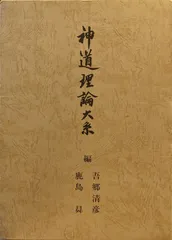 神道理論大系
編
吾郷清彦
鹿島昇